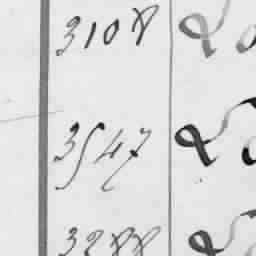 3108
3547
3288